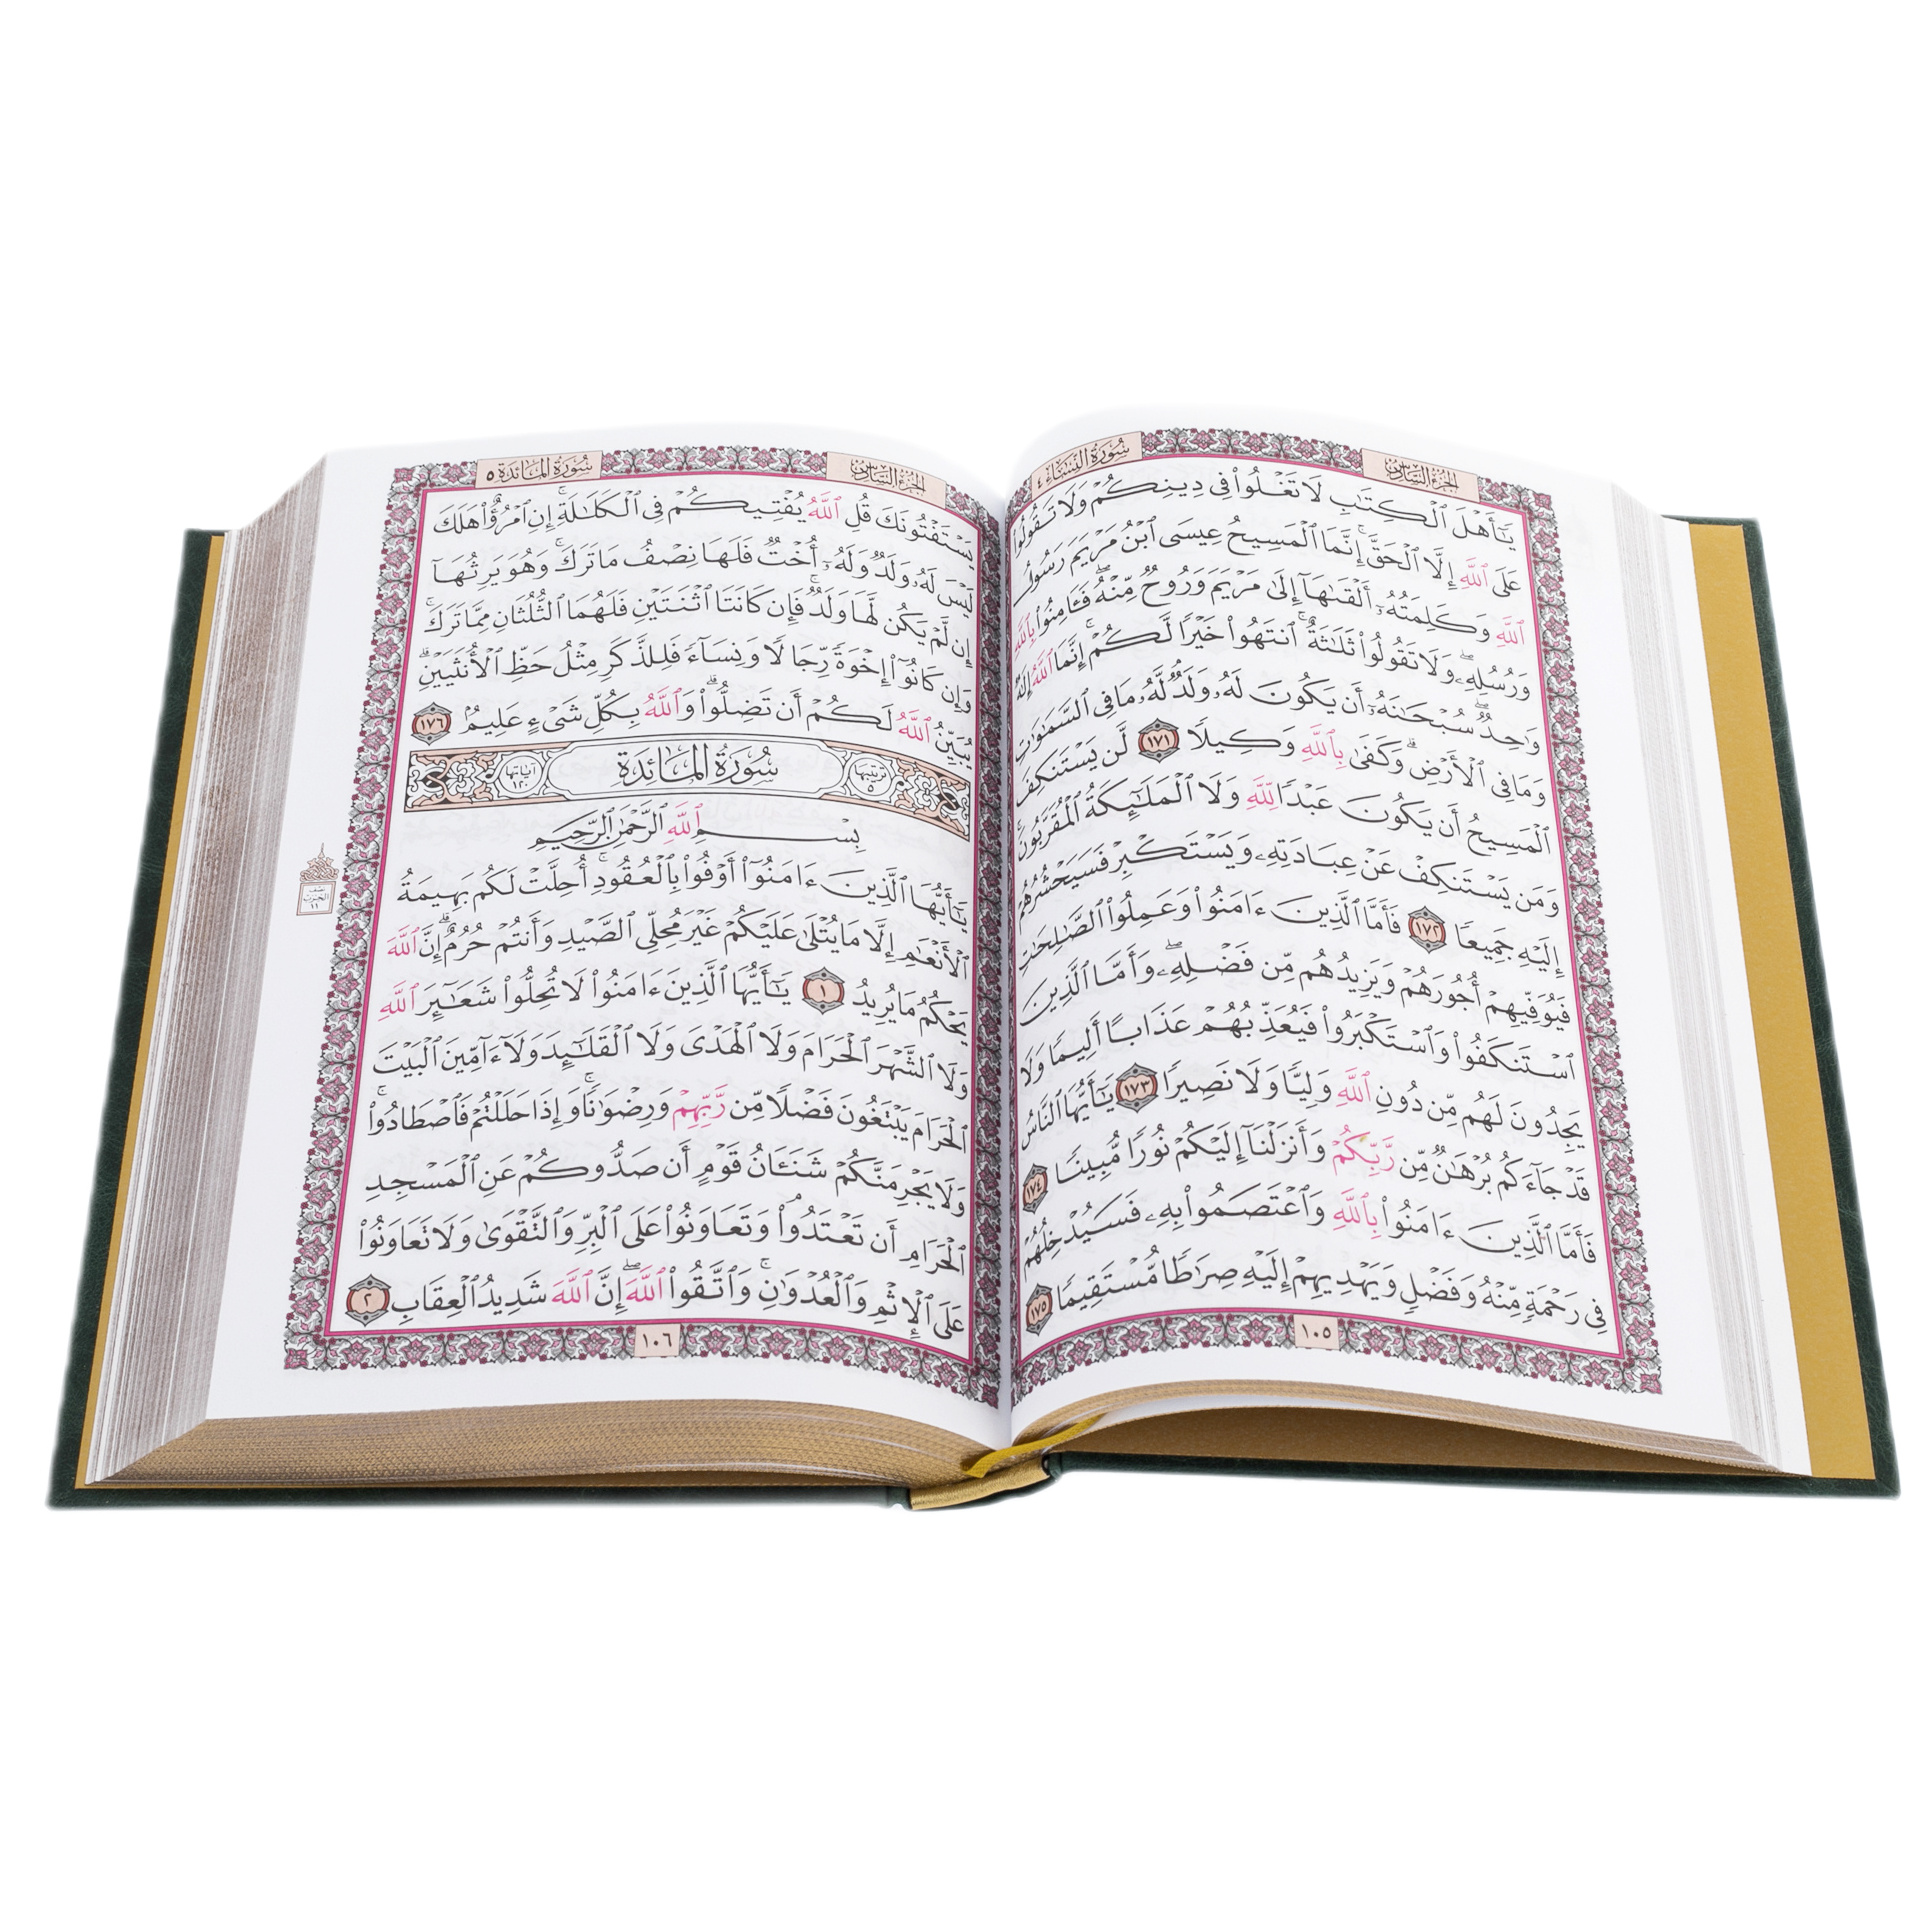 الجزء السادس
سورة النساء ٤
يَٰٓأَهۡلَ ٱلۡكِتَٰبِ لَا تَغۡلُواْ فِي دِينِكُمۡ وَلَا تَقُولُواْ
عَلَى ٱللَّهِ إِلَّا ٱلۡحَقَّۚ إِنَّمَا ٱلۡمَسِيحُ عِيسَى ٱبۡنُ مَرۡيَمَ رَسُولُ
ٱللَّهِ وَكَلِمَتُهُۥٓ أَلۡقَىٰهَآ إِلَىٰ مَرۡيَمَ وَرُوحٞ مِّنۡهُۖ فَـَٔامِنُواْ بِٱللَّهِ
وَرُسُلِهِۦۖ وَلَا تَقُولُواْ ثَلَٰثَةٌۚ ٱنتَهُواْ خَيۡرٗا لَّكُمۡۚ إِنَّمَا ٱللَّهُ إِلَٰهٞ
وَٰحِدٞۖ سُبۡحَٰنَهُۥٓ أَن يَكُونَ لَهُۥ وَلَدٞۘ لَّهُۥ مَا فِي ٱلسَّمَٰوَٰتِ
وَمَا فِي ٱلۡأَرۡضِۗ وَكَفَىٰ بِٱللَّهِ وَكِيلٗا ١٧١ لَّن يَسۡتَنكِفَ
ٱلۡمَسِيحُ أَن يَكُونَ عَبۡدٗا لِّلَّهِ وَلَا ٱلۡمَلَٰٓئِكَةُ ٱلۡمُقَرَّبُونَۚ
وَمَن يَسۡتَنكِفۡ عَنۡ عِبَادَتِهِۦ وَيَسۡتَكۡبِرۡ فَسَيَحۡشُرُهُمۡ
إِلَيۡهِ جَمِيعٗا ١٧٢ فَأَمَّا ٱلَّذِينَ ءَامَنُواْ وَعَمِلُواْ ٱلصَّٰلِحَٰتِ
فَيُوَفِّيهِمۡ أُجُورَهُمۡ وَيَزِيدُهُم مِّن فَضۡلِهِۦۖ وَأَمَّا ٱلَّذِينَ
ٱسۡتَنكَفُواْ وَٱسۡتَكۡبَرُواْ فَيُعَذِّبُهُمۡ عَذَابًا أَلِيمٗا وَلَا
يَجِدُونَ لَهُم مِّن دُونِ ٱللَّهِ وَلِيّٗا وَلَا نَصِيرٗا ١٧٣ يَٰٓأَيُّهَا ٱلنَّاسُ
قَدۡ جَآءَكُم بُرۡهَٰنٞ مِّن رَّبِّكُمۡ وَأَنزَلۡنَآ إِلَيۡكُمۡ نُورٗا مُّبِينٗا ١٧٤
فَأَمَّا ٱلَّذِينَ ءَامَنُواْ بِٱللَّهِ وَٱعۡتَصَمُواْ بِهِۦ فَسَيُدۡخِلُهُمۡ
فِي رَحۡمَةٖ مِّنۡهُ وَفَضۡلٖ وَيَهۡدِيهِمۡ إِلَيۡهِ صِرَٰطٗا مُّسۡتَقِيمٗا ١٧٥
١٠٥
الجزء السادس
سورة المائدة ٥
يَسۡتَفۡتُونَكَ قُلِ ٱللَّهُ يُفۡتِيكُمۡ فِي ٱلۡكَلَٰلَةِۚ إِنِ ٱمۡرُؤٌاْ هَلَكَ
لَيۡسَ لَهُۥ وَلَدٞ وَلَهُۥٓ أُخۡتٞ فَلَهَا نِصۡفُ مَا تَرَكَۚ وَهُوَ يَرِثُهَآ
إِن لَّمۡ يَكُن لَّهَا وَلَدٞۚ فَإِن كَانَتَا ٱثۡنَتَيۡنِ فَلَهُمَا ٱلثُّلُثَانِ مِمَّا تَرَكَۚ
وَإِن كَانُوٓاْ إِخۡوَةٗ رِّجَالٗا وَنِسَآءٗ فَلِلذَّكَرِ مِثۡلُ حَظِّ ٱلۡأُنثَيَيۡنِۗ
يُبَيِّنُ ٱللَّهُ لَكُمۡ أَن تَضِلُّواْۗ وَٱللَّهُ بِكُلِّ شَيۡءٍ عَلِيمُۢ ١٧٦
ترتيبها ٥ سُورَةُ المَائدة آياتها ١٢٠
بِسۡمِ ٱللَّهِ ٱلرَّحۡمَٰنِ ٱلرَّحِيمِ
يَٰٓأَيُّهَا ٱلَّذِينَ ءَامَنُوٓاْ أَوۡفُواْ بِٱلۡعُقُودِۚ أُحِلَّتۡ لَكُم بَهِيمَةُ
ٱلۡأَنۡعَٰمِ إِلَّا مَا يُتۡلَىٰ عَلَيۡكُمۡ غَيۡرَ مُحِلِّي ٱلصَّيۡدِ وَأَنتُمۡ حُرُمٌۗ إِنَّ ٱللَّهَ
يَحۡكُمُ مَا يُرِيدُ ١ يَٰٓأَيُّهَا ٱلَّذِينَ ءَامَنُواْ لَا تُحِلُّواْ شَعَٰٓئِرَ ٱللَّهِ
وَلَا ٱلشَّهۡرَ ٱلۡحَرَامَ وَلَا ٱلۡهَدۡيَ وَلَا ٱلۡقَلَٰٓئِدَ وَلَآ ءَآمِّينَ ٱلۡبَيۡتَ
ٱلۡحَرَامَ يَبۡتَغُونَ فَضۡلٗا مِّن رَّبِّهِمۡ وَرِضۡوَٰنٗاۚ وَإِذَا حَلَلۡتُمۡ فَٱصۡطَادُواْۚ
وَلَا يَجۡرِمَنَّكُمۡ شَنَـَٔانُ قَوۡمٍ أَن صَدُّوكُمۡ عَنِ ٱلۡمَسۡجِدِ
ٱلۡحَرَامِ أَن تَعۡتَدُواْۘ وَتَعَاوَنُواْ عَلَى ٱلۡبِرِّ وَٱلتَّقۡوَىٰۖ وَلَا تَعَاوَنُواْ
عَلَى ٱلۡإِثۡمِ وَٱلۡعُدۡوَٰنِۚ وَٱتَّقُواْ ٱللَّهَۖ إِنَّ ٱللَّهَ شَدِيدُ ٱلۡعِقَابِ ٢
١٠٦
نصف
الحزب
١١